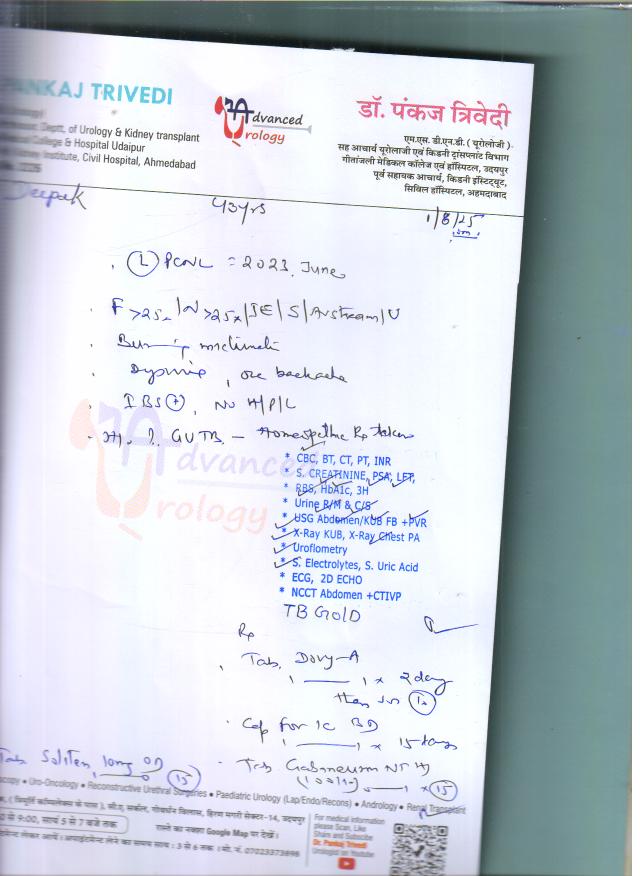 PANKAJ TRIVEDI
Advanced
Urology
डॉ. पंकज त्रिवेदी
Deptt, of Urology & Kidney transplant
College & Hospital Udaipur
Institute, Civil Hospital, Ahmedabad
एम.एस. डी.एन.बी. ( यूरोलोजी )
सह आचार्य यूरोलोजी एवं किडनी ट्रांसप्लांट विभाग
गीतांजली मेडिकल कॉलेज एवं हॉस्पिटल, उदयपुर
पूर्व सहायक आचार्य, किडनी इंस्टिट्यूट,
सिविल हॉस्पिटल, अहमदाबाद
Deepak 43yrs 1/8/25
L PCNL = 2023, June
F >25x / N >25x / IE / S / / U
Burning micturition
, occ backache
IBS +, No H/P/L
? GUTB - Homeopathic Rx taken
* CBC, BT, CT, PT, INR
* S. CREATININE, PSA, LFT,
* RBS, HbA1c, 3H
* Urine R/M & C/S
* USG Abdomen/KUB FB +PVR
* X-Ray KUB, X-Ray Chest PA
* Uroflometry
* S. Electrolytes, S. Uric Acid
* ECG, 2D ECHO
* NCCT Abdomen +CTIVP
TB GOLD
Advanced
Urology
Rx
Tab. Dovy-A
1 — 1 x 2 day
then
Cap BD
1 — 1 x 15 days
Tab Gabaneuron NT
(100/10) 0 — 1 x 15
Tab Soliten OD
15
Uro-Oncology • Reconstructive Urethral Surgeries • Paediatric Urology (Lap/Endo/Recons) • Andrology • Renal Transplant
गोवर्धन विलास, हिरण मगरी सेक्टर-14, उदयपुर
से 9:00, सायं 5 से 7 बजे तक
रास्ते का नक्शा Google Map पर देखें।
अपाइंटमेन्ट लेने का समय सायं : 3 से 6 तक । मो. नं. 07023373698
For medical information
please Scan, Like
Share and Subscibe
Dr. Pankaj Trivedi
Urologist on Youtube